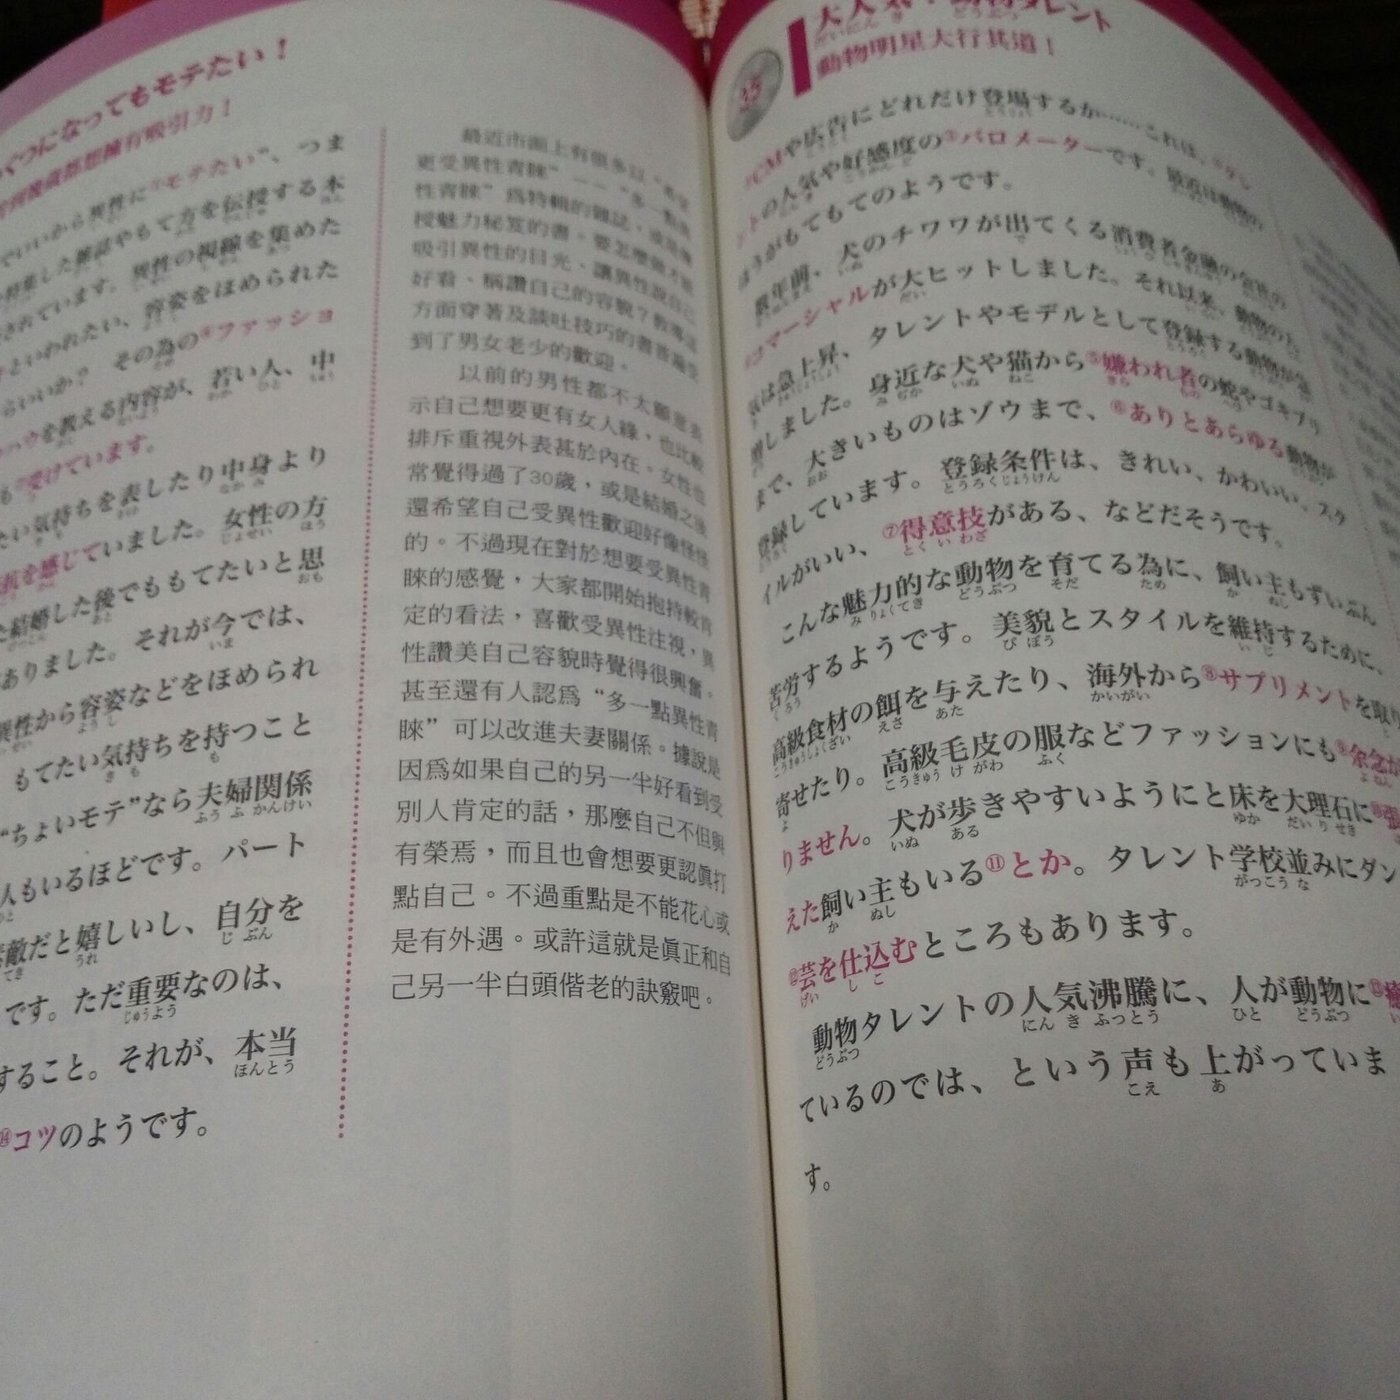 いくつになってもモテたい！
吸引力！
でいいから異性に①"モテたい"、つま
特集した雑誌やもて方を伝授する本
されています。異性の視線を集めた
といわれたい、容姿をほめられた
らいいか？ その為の④ファッショ
ハウを教える内容が、若い人、中
も⑤受けています。
たい気持ちを表したり中身より
を感じていました。女性の方
た結婚した後でももてたいと思
ありました。それが今では、
異性から容姿などをほめられ
もてたい気持ちを持つこと
"ちょいモテ"なら夫婦関係
人もいるほどです。パート
素敵だと嬉しいし、自分を
です。ただ重要なのは、
すること。それが、本当
⑭コツのようです。
最近市面上有很多以"希望
更受異性青睞"——"多一點異
性青睞"為特輯的雜誌，或是傳
授魅力秘笈的書。要怎麼做才能
吸引異性的目光、讓異性說自己
好看、稱讚自己的容貌？教導這
方面穿著及談吐技巧的書普遍受
到了男女老少的歡迎。
以前的男性都不太願意表
示自己想要更有女人緣，也比較
排斥重視外表甚於內在。女性也
常覺得過了30歲，或是結婚之後
還希望自己受異性歡迎好像怪怪
的。不過現在對於想要受異性青
睞的感覺，大家都開始抱持較肯
定的看法，喜歡受異性注視，異
性讚美自己容貌時覺得很興奮。
甚至還有人認爲"多一點異性青
睞"可以改進夫妻關係。據說是
因爲如果自己的另一半好看到受
別人肯定的話，那麼自己不但與
有榮焉，而且也會想要更認眞打
點自己。不過重點是不能花心或
是有外遇。或許這就是眞正和自
己另一半白頭偕老的訣竅吧。
大人気・動物タレント
動物明星大行其道！
35
CMや広告にどれだけ登場するか……これは、②タレ
ントの人気や好感度の③バロメーターです。最近は動物の
ほうがもてもてのようです。
数年前、犬のチワワが出てくる消費者金融の会社の
④コマーシャルが大ヒットしました。それ以来、動物の人
気は急上昇、タレントやモデルとして登録する動物が急
増しました。身近な犬や猫から⑤嫌われ者の蛇やゴキブリ
まで、大きいものはゾウまで、⑥ありとあらゆる動物が
登録しています。登録条件は、きれい、かわいい、スタ
イルがいい、⑦得意技がある、などだそうです。
こんな魅力的な動物を育てる為に、飼い主もずいぶん
苦労するようです。美貌とスタイルを維持するために、
高級食材の餌を与えたり、海外から⑧サプリメントを取り
寄せたり。高級毛皮の服などファッションにも⑨余念が
りません。犬が歩きやすいようにと床を大理石に⑩張
えた飼い主もいる⑪とか。タレント学校並みにダン
⑫芸を仕込むところもあります。
動物タレントの人気沸騰に、人が動物に⑬
ているのでは、という声も上がっていま
す。